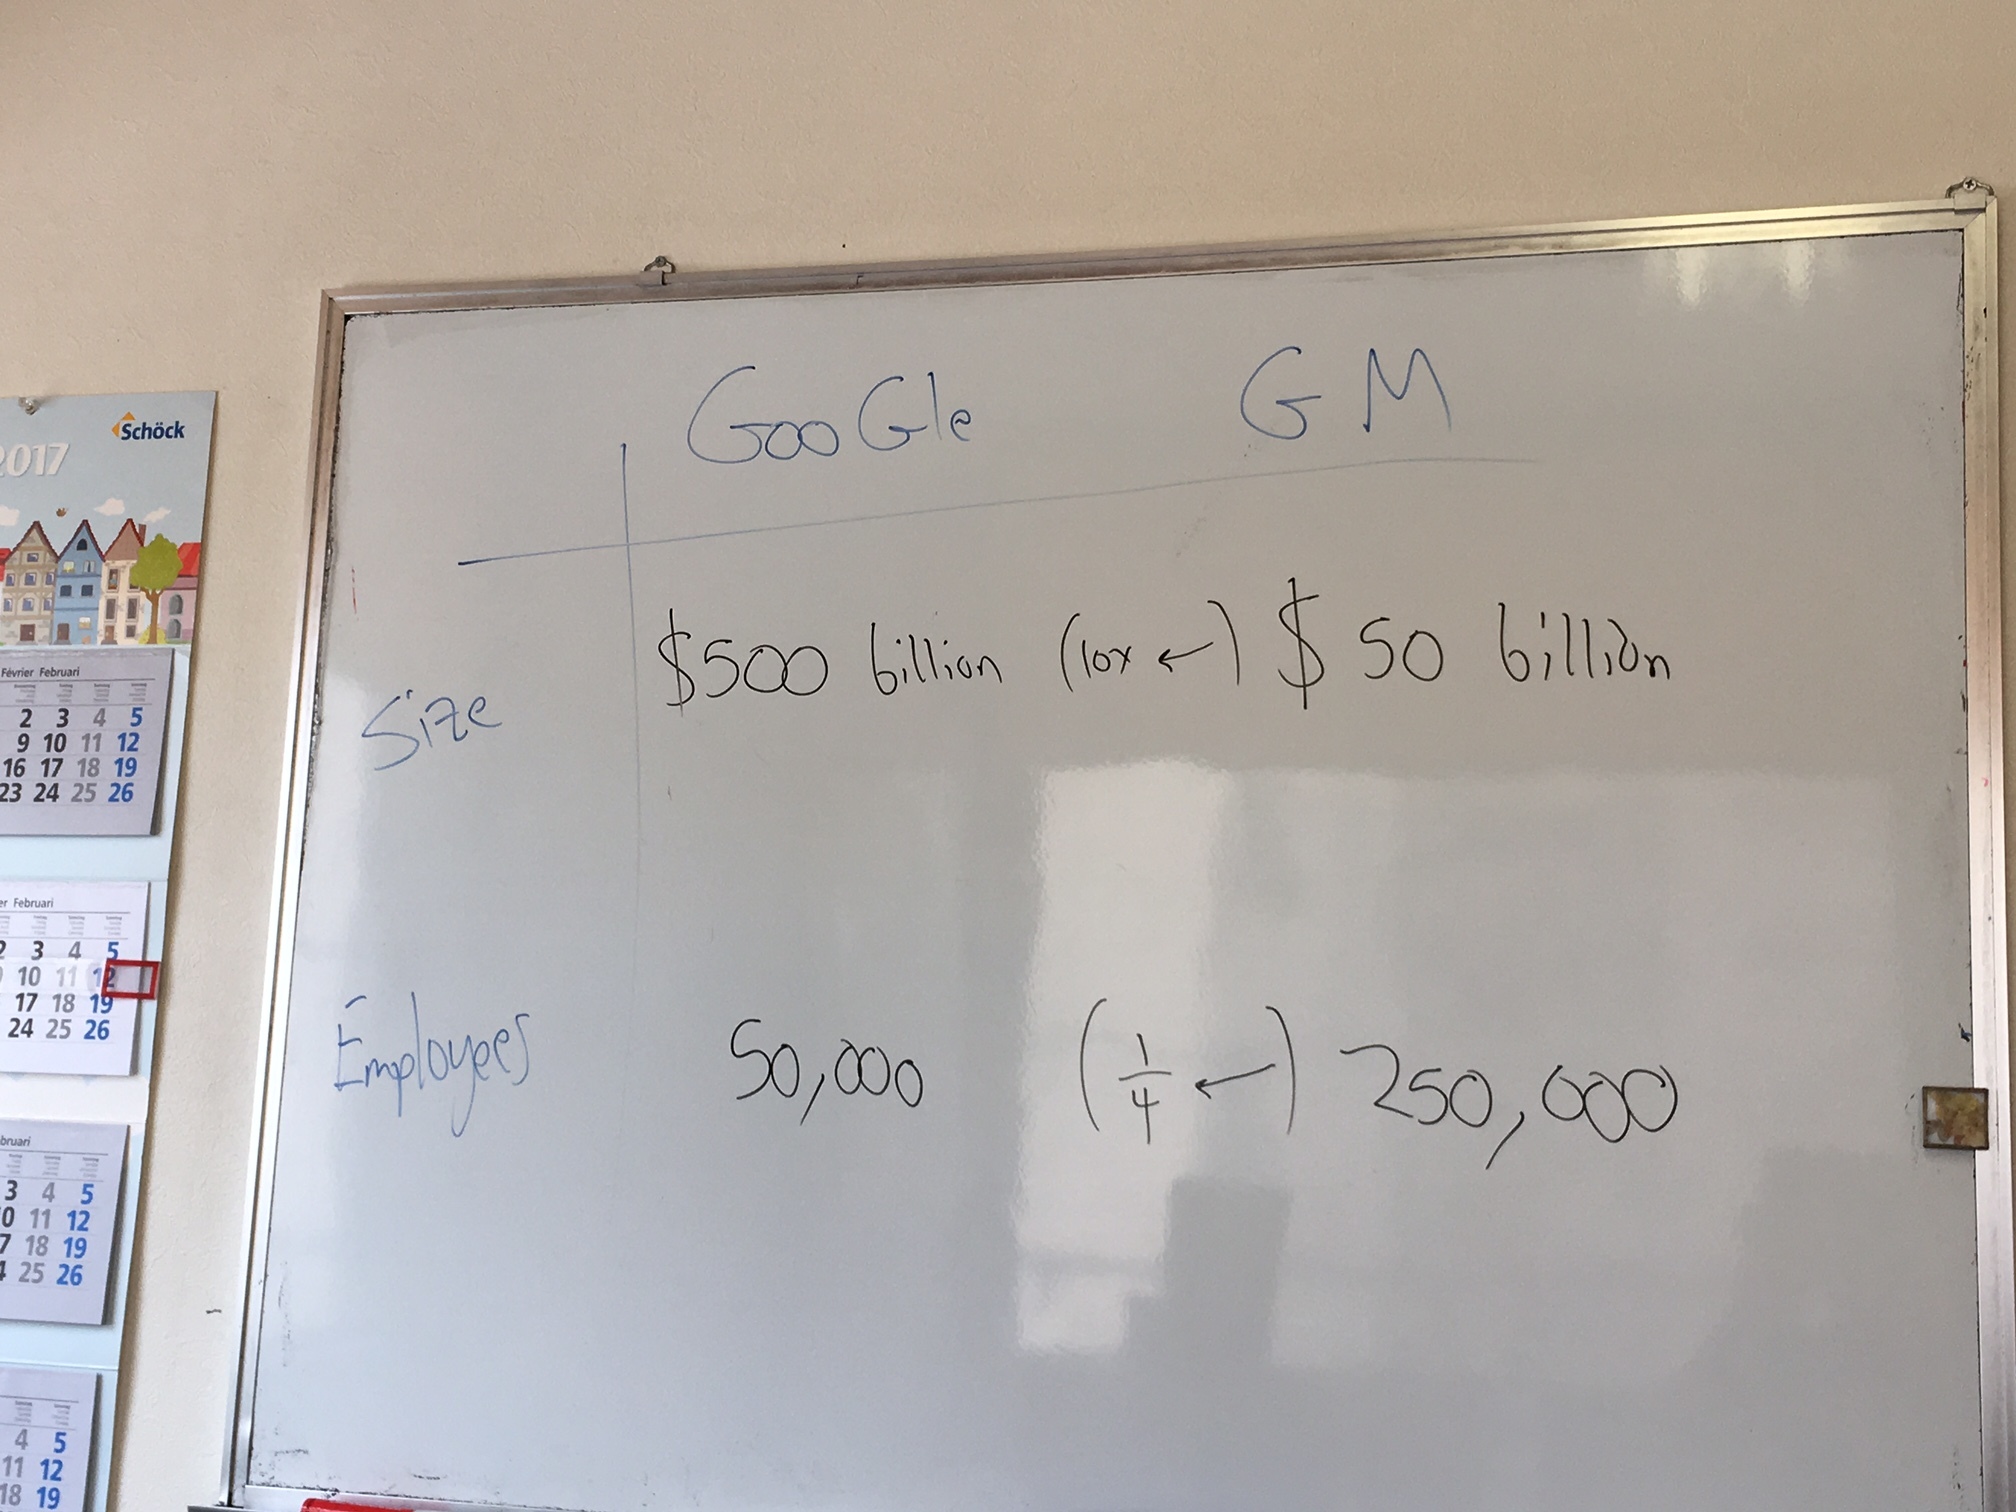 GooGle GM
Size $500 billion (10x ←) $ 50 billion
Employees 50,000 (1/4 ←) 250,000
Schöck
2017
Février Februari
2 3 4 5
9 10 11 12
16 17 18 19
23 24 25 26
er Februari
2 3 4 5
10 11 12
17 18 19
24 25 26
bruari
3 4 5
0 11 12
7 18 19
4 25 26
4 5
11 12
18 19